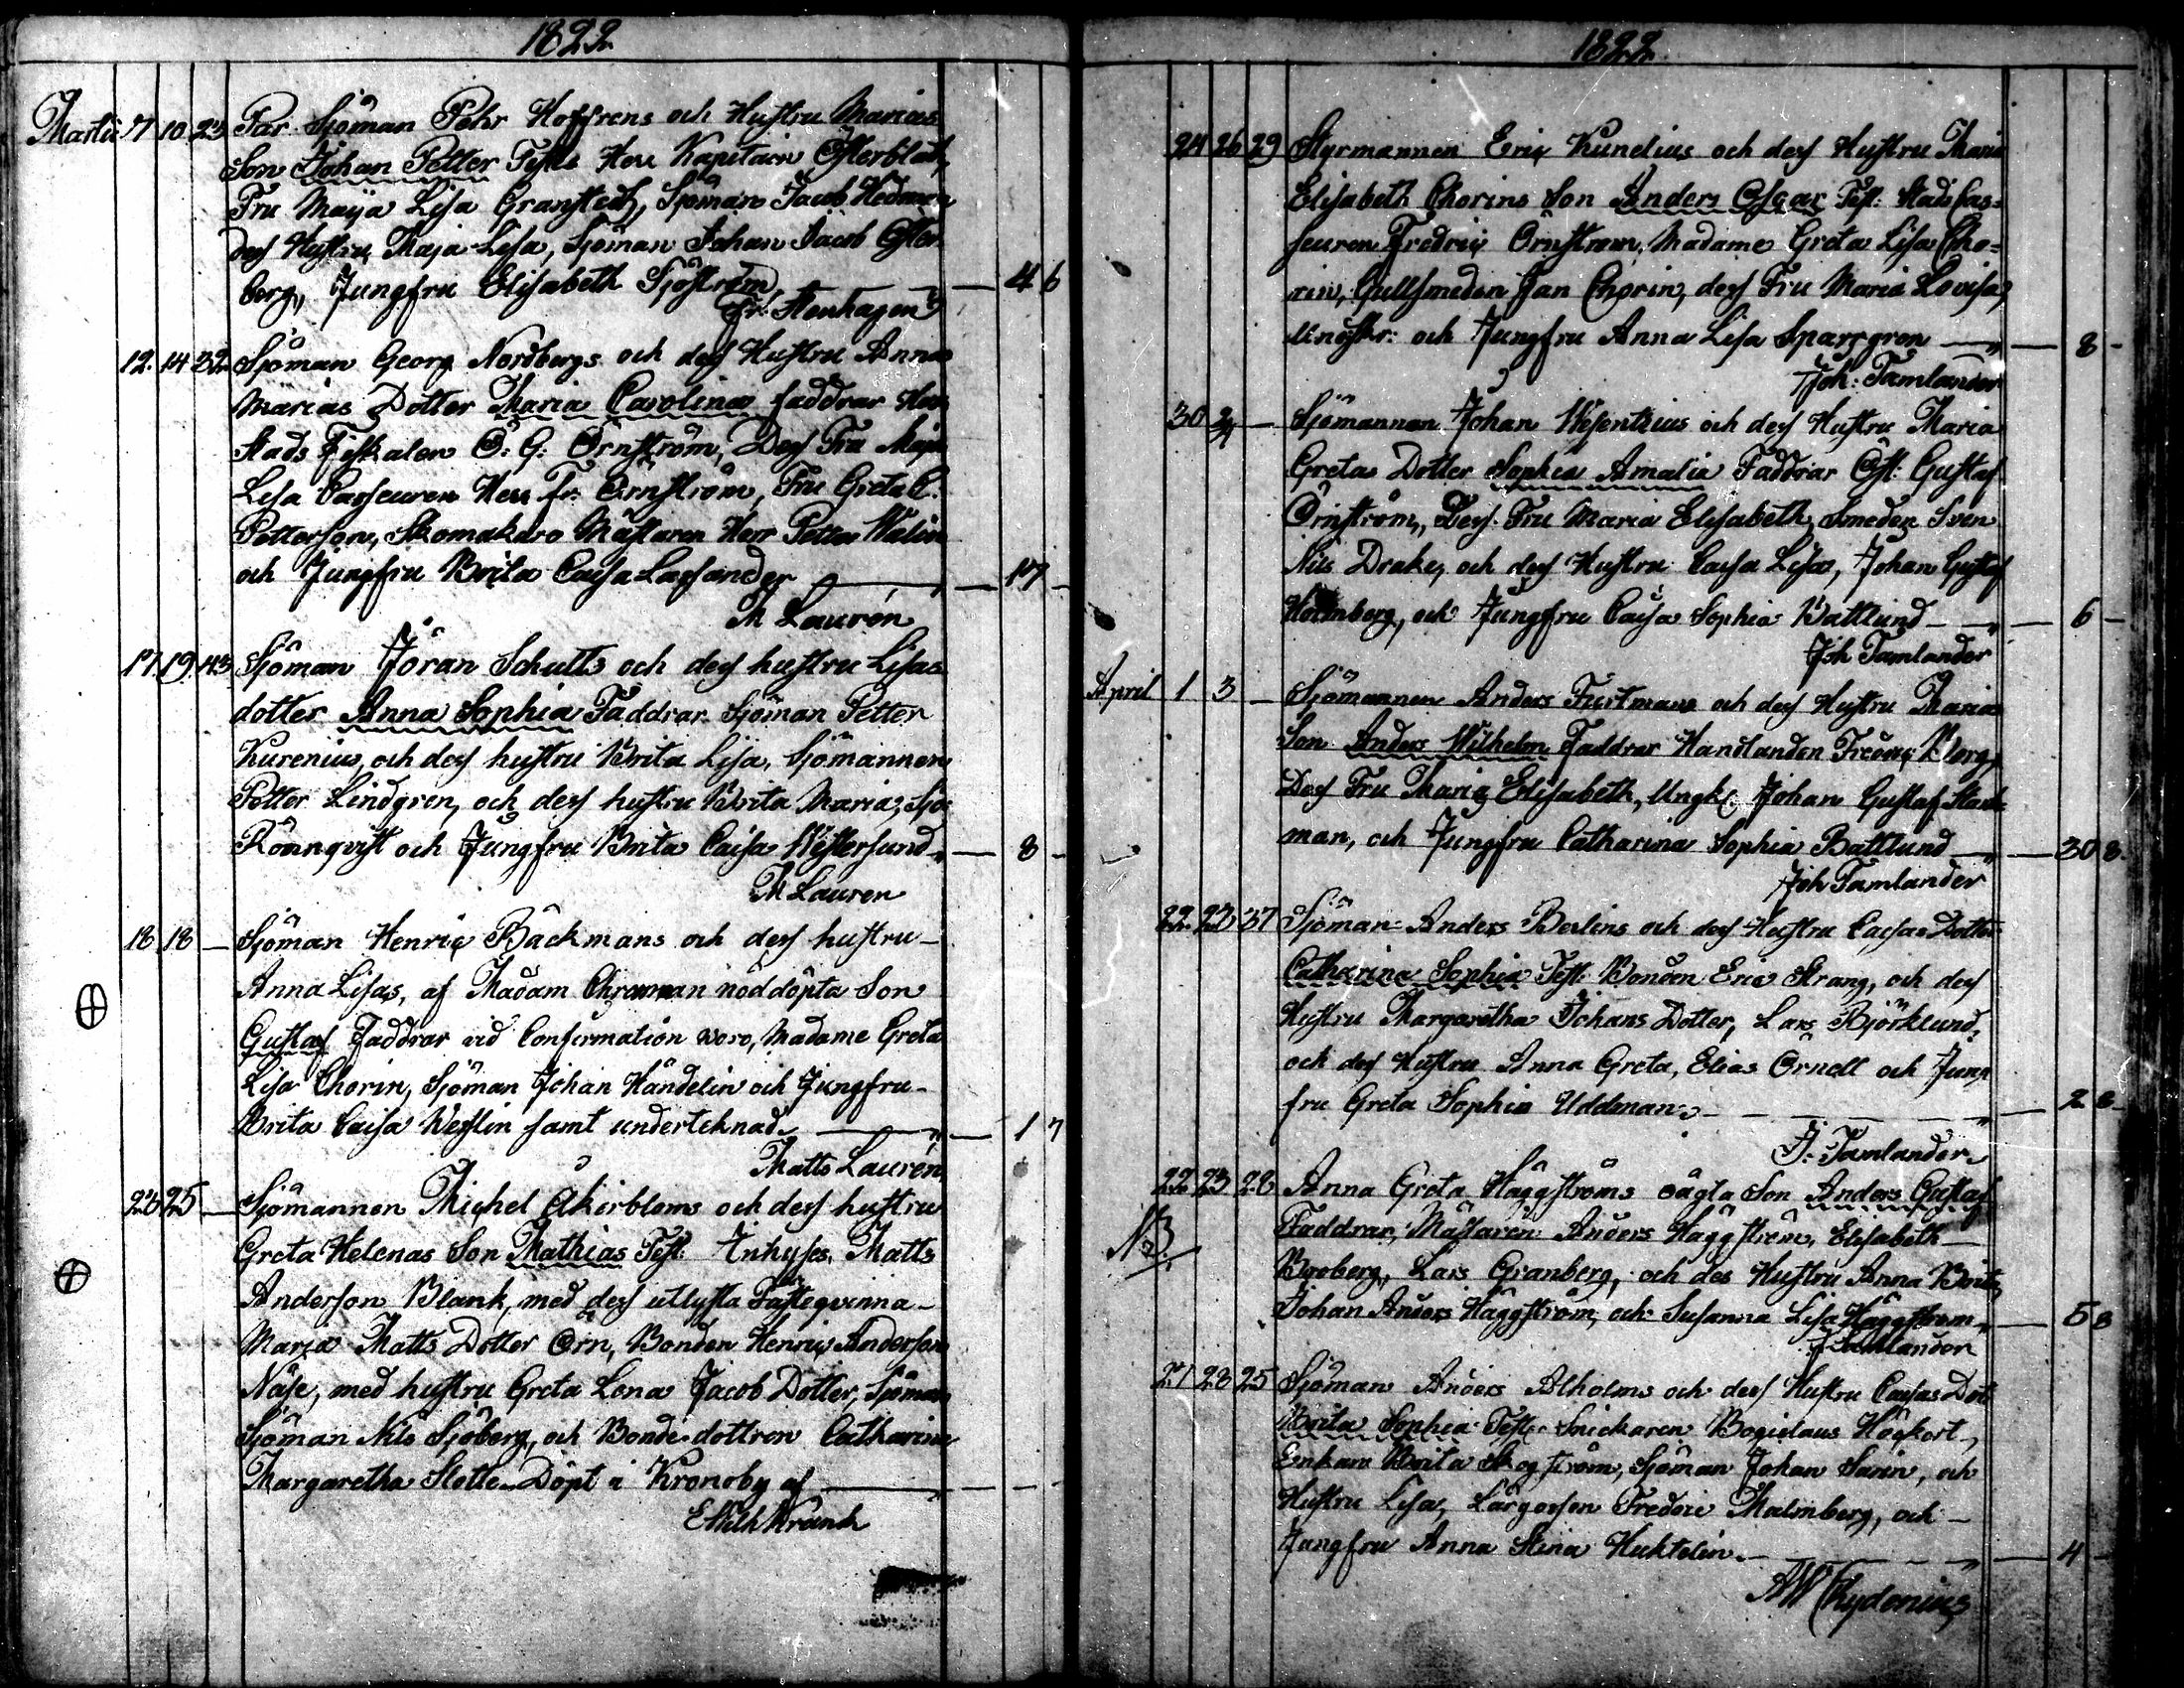 1822
Martii 7 10 23 Par. Sjöman Pehr Hoffrens och Hustru Marias
Son Johan Petter Teste Herr Kapitain Österblad,
Fru Maija Lisa Granstedt, Sjöman Jacob Hedman
dess Hustru Maja Lisa, Sjöman Johan Jacob Öster
berg, Jungfru Elisabeth Sjöström — 4 6
Fr: Stenhagen
12. 14 32 Sjöman Georg Nordbergs och dess Hustru Anna
Marias Dotter Maria Carolina faddrar Herr
Stads Fiskalen C: G: Örnström, Dess Fru Maja
Lisa Casseuren Herr Fr: Örnström, Fru Greta C.
Petterson, Skomakare Mästaren Herr Petter Walin
och Jungfru Brita Caisa Lassander — 17 -
M Laurén
17. 19. 43. Sjöman Jöran Schults och dess hustru Lisas
dotter Anna Sophia Faddrar Sjöman Petter
Kurenius, och dess hustru Brita Lisa, Sjömannen
Petter Lindgren, och dess hustru Brita Maria, Sjö
Rönnqvist och Jungfru Brita Caisa Westersund — 8 -
M Lauren
18 18 — Sjöman Henric Bäckmans och dess hustru
Anna Lisas, af Madam Chroman nöddöpta Son
Gustaf Faddrar vid Confirmation woro, Madame Greta
Lisa Chorin, Sjöman Johan Händelin och Jungfru
Brita Caisa Weslin samt underteknad — 1 7
Matts Laurén
23 25 — Sjömannen Michel Åkerbloms och dess hustru
Greta Helenas Son Mathias Test: Inhyses Matts
Anderson Blank, med dess utlysta Fästeqvinna
Maria Matts Dotter Örn, Bonden Henric Anderson
Näse, med hustru Greta Lena Jacob Dotter, Sjöman
Sjöman Nils Sjöberg, och Bonde dottren Catharina
Margaretha Slotte. Döpt i Kronoby af — - -
1822
24 26 29 Styrmannen Eric Kunelius och dess Hustru Maria
Elisabeth Chorins Son Anders Oscar Test: Stads Cas=
seuren Fredric Örnström, Madame Greta Lisa Cho=
rin, Gullsmeden Jan Chorin, dess Fru Maria Lovisa,
och Jungfru Anna Lisa Sparrgren — 8 -
Joh: Tamlander
30 2/4 — Sjömannen Johan Wesentzius och dess Hustru Maria
Gretas Dotter Sophia Amalia Faddrar Gustaf
Örnström, Dess Fru Maria Elisabeth, Smeden Sven
Nils Drake, och dess Hustru Caisa Lisa, Johan Gustaf
Holmberg, och Jungfru Caisa Sophia Battlund — 6 -
Joh Tamlander
April 1 3 — Sjömannen Anders Furtmans och dess Hustru Marias
Son Anders Wilhelm Faddrar Handlanden Fredric Berg,
Dess Fru Maria Elisabeth, Ungk: Johan Gustaf Stark
man, och Jungfru Catharina Sophia Battlund — 30 8.
Joh Tamlander
22. 23 37 Sjöman Anders Berlins och dess Hustru Caisas Dotter
Catharina Sophia Test: Bonden Eric Strang, och dess
Hustru Margaretha Johans Dotter, Lars Björklund,
och dess Hustru Anna Greta, Elias Örnell och Jung
fru Greta Sophia Uddman — 2 8
J: Tamlander
22 23 28 Anna Greta Häggströms oägta Son Anders Gustaf
N3. Faddrar, Mästaren Anders Häggström, Elisabeth
Broberg, Lars Granberg, och des Hustru Anna Brita
Johan Anders Häggström, och Susanna Lisa Häggström — 5 8
J Tamlander
21 23 25 Sjöman Anders Alholms och dess Hustru Caisas Dot
Brita Sophia Test: Snickaren Bogislaus Högkort,
Enkan Brita Skogström, Sjöman Johan Sarin, och
Hustru Lisa, Färgesson Fredric Malmberg, och
Jungfru Anna Stina Huktelin — 4 -
AW Chydenius